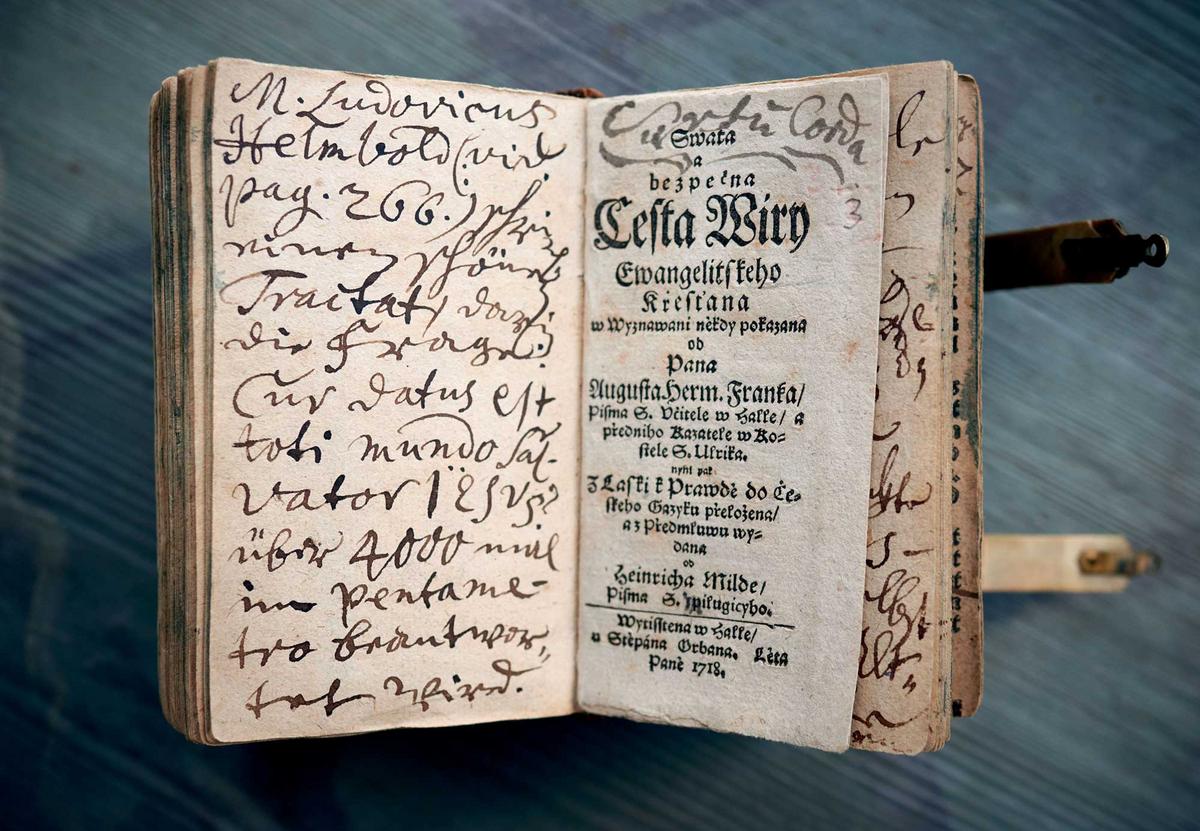 M. Ludovicus
Helmbold (vid
pag. 266.) schrei
einen schönen
Tractat, darin
die Frage:
Cur datus est
toti mundo Sal-
vator IESUS?
über 4000 mal
im pentame-
tro beantwor-
tet wird.
Swata
a
bezpečna
Cesta Wiry
Ewangelitskeho
Křesťana
w Wyznawani někdy pokazana
od
Pana
Augusta Herm. Franka/
Pisma S. Včitele w Halle/ a
předniho Kazatele w Ko=
stele S. Ulrika.
nyni pak
z Laski k Prawdě do Če=
skeho Gazyku přeložena/
a z Předmluwu wy=
dana
od
Heinricha Milde/
Pisma S.
Wytisstena w Halle/
u Stěpána Orbana. Léta
Paně 1718.
3